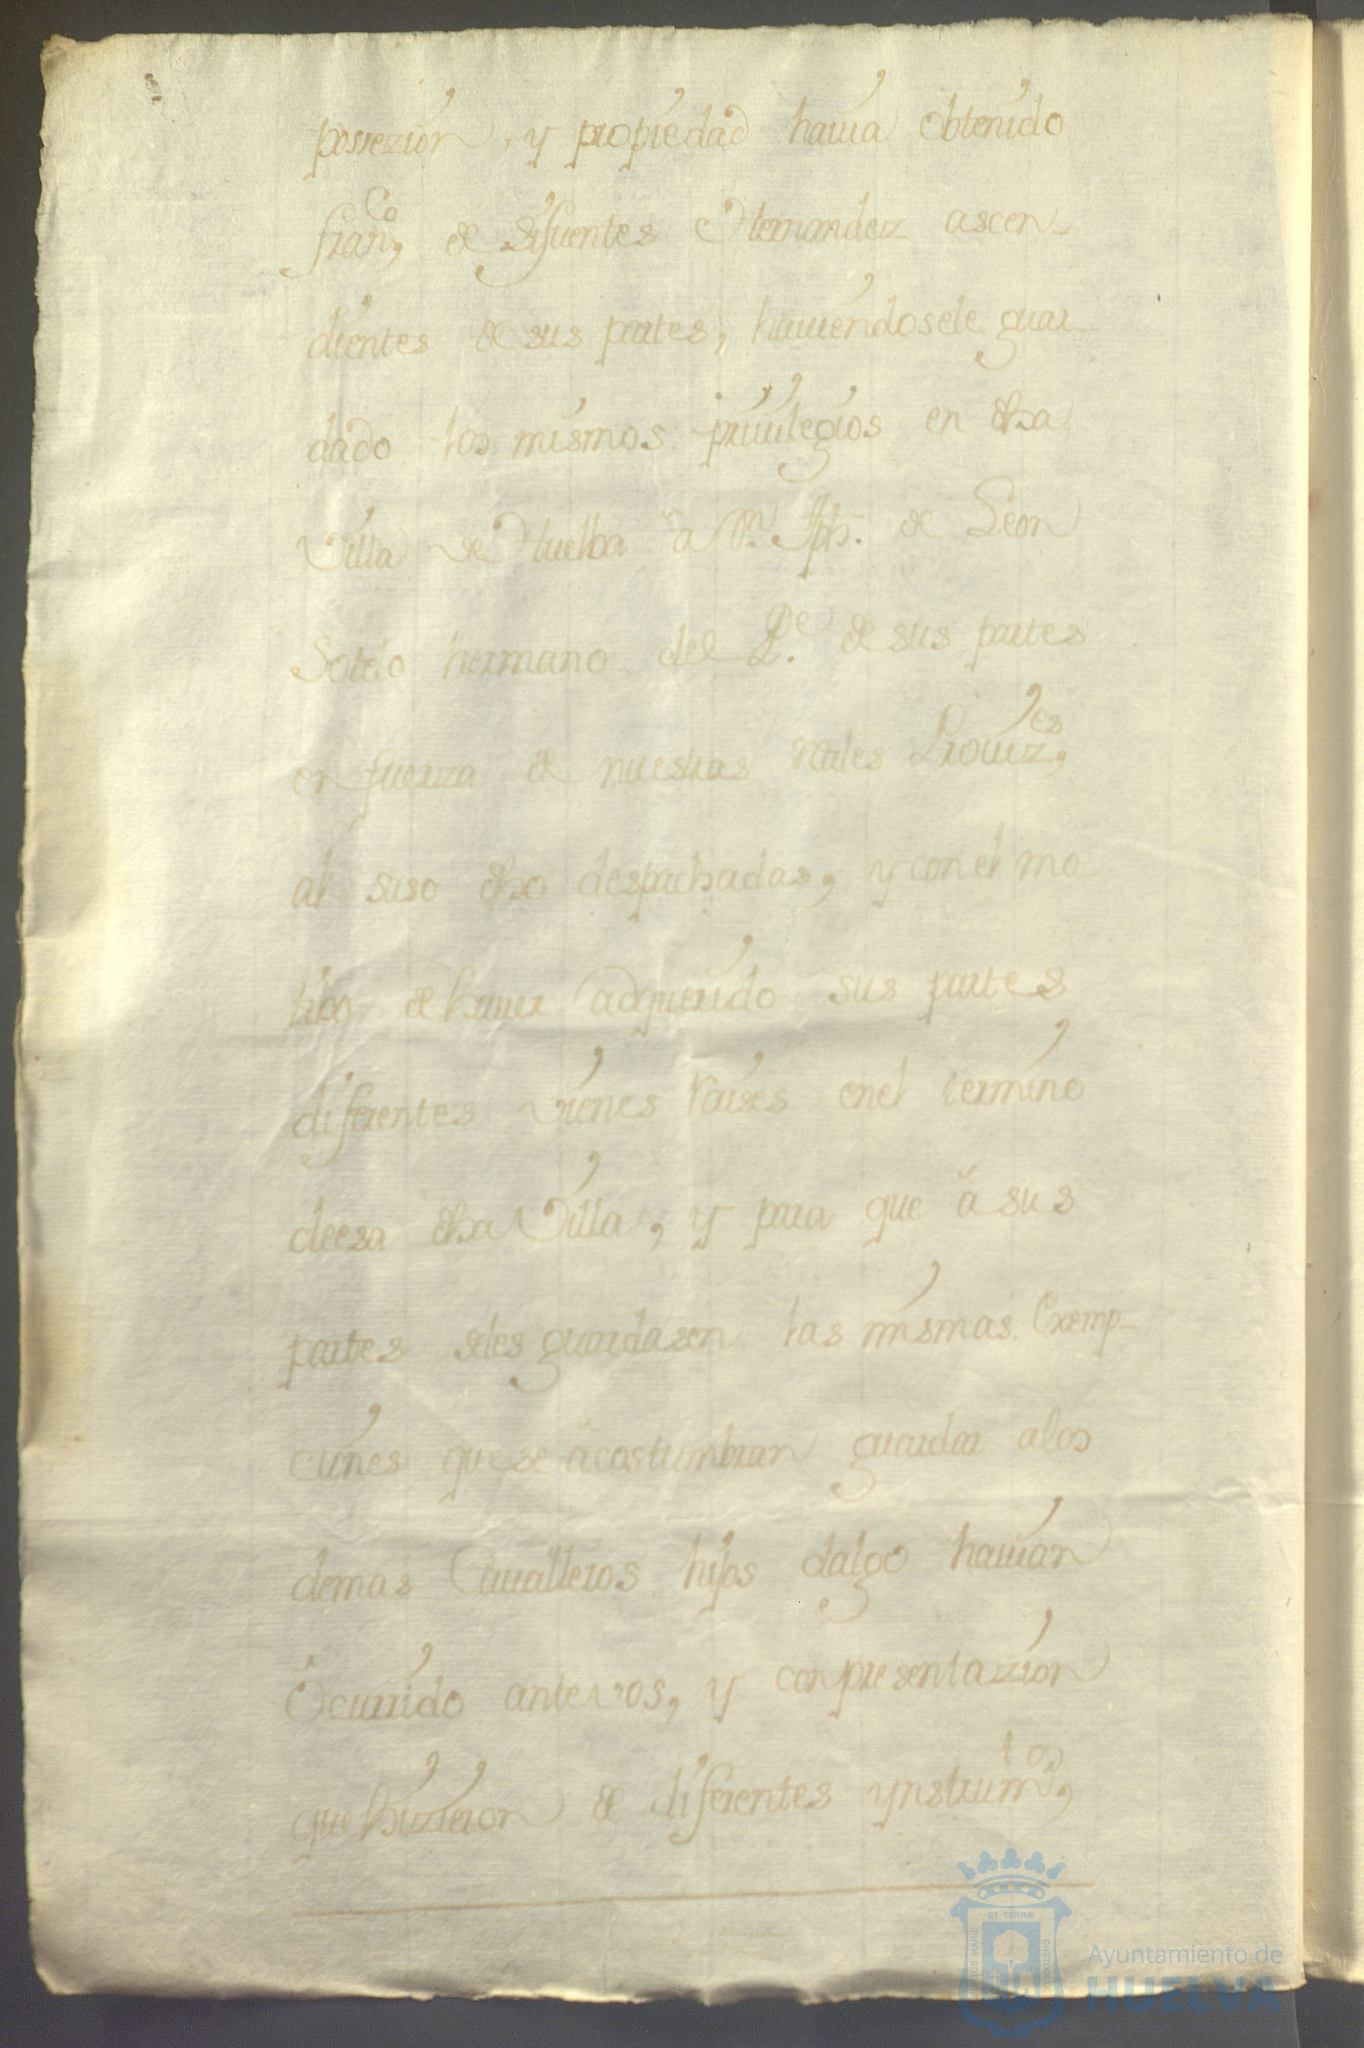 possezion, y propiedad hauia obtenido
fran,co de Sifuentes Hernandez ascen-
dientes de sus partes, hauiendosele guar
dado los mismos priuilegios en dha
Villa de Huelba â Dn. Jph. de Leon
Sotelo hermano del Pe. de sus partes
en fuerza de nuestras rales Prouiz,es
al suso dho despachadas, y con el mo
tibo de hauer adquirido sus partes
diferentes vienes raises enel termino
deesa dha Villa, y para que â sus
partes seles guardasen las mismas Exemp-
ciones quese âcostumbran guardar alos
demas Caualleros hijos dalgo hauian
Ocurrido antevos, y con presentazion
que hizieron de diferentes ynstrum,tos
Ayuntamiento de
HUELVA